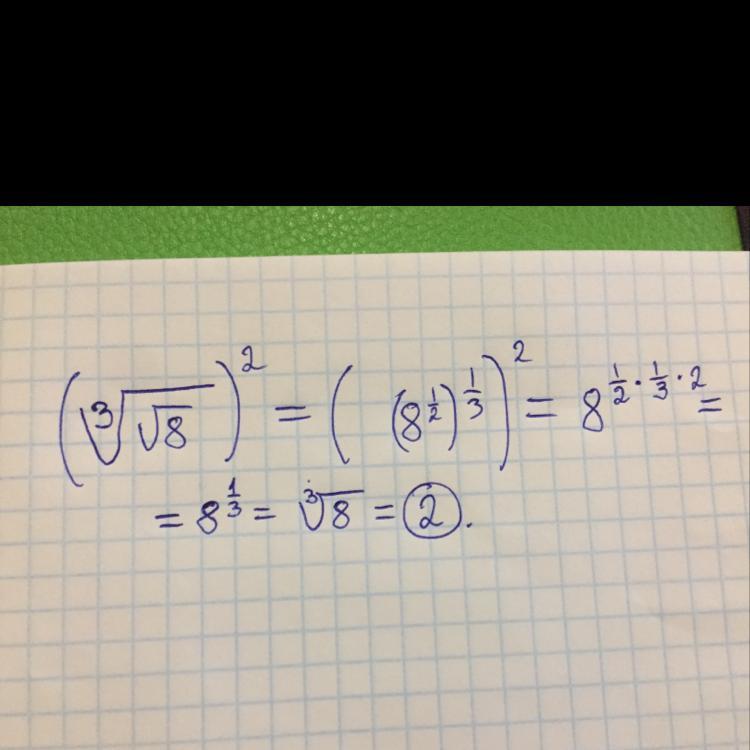 (∛(√8))² = ((8^(1/2))^(1/3))² = 8^(1/2 · 1/3 · 2) =
= 8^(1/3) = ∛8 = 2.